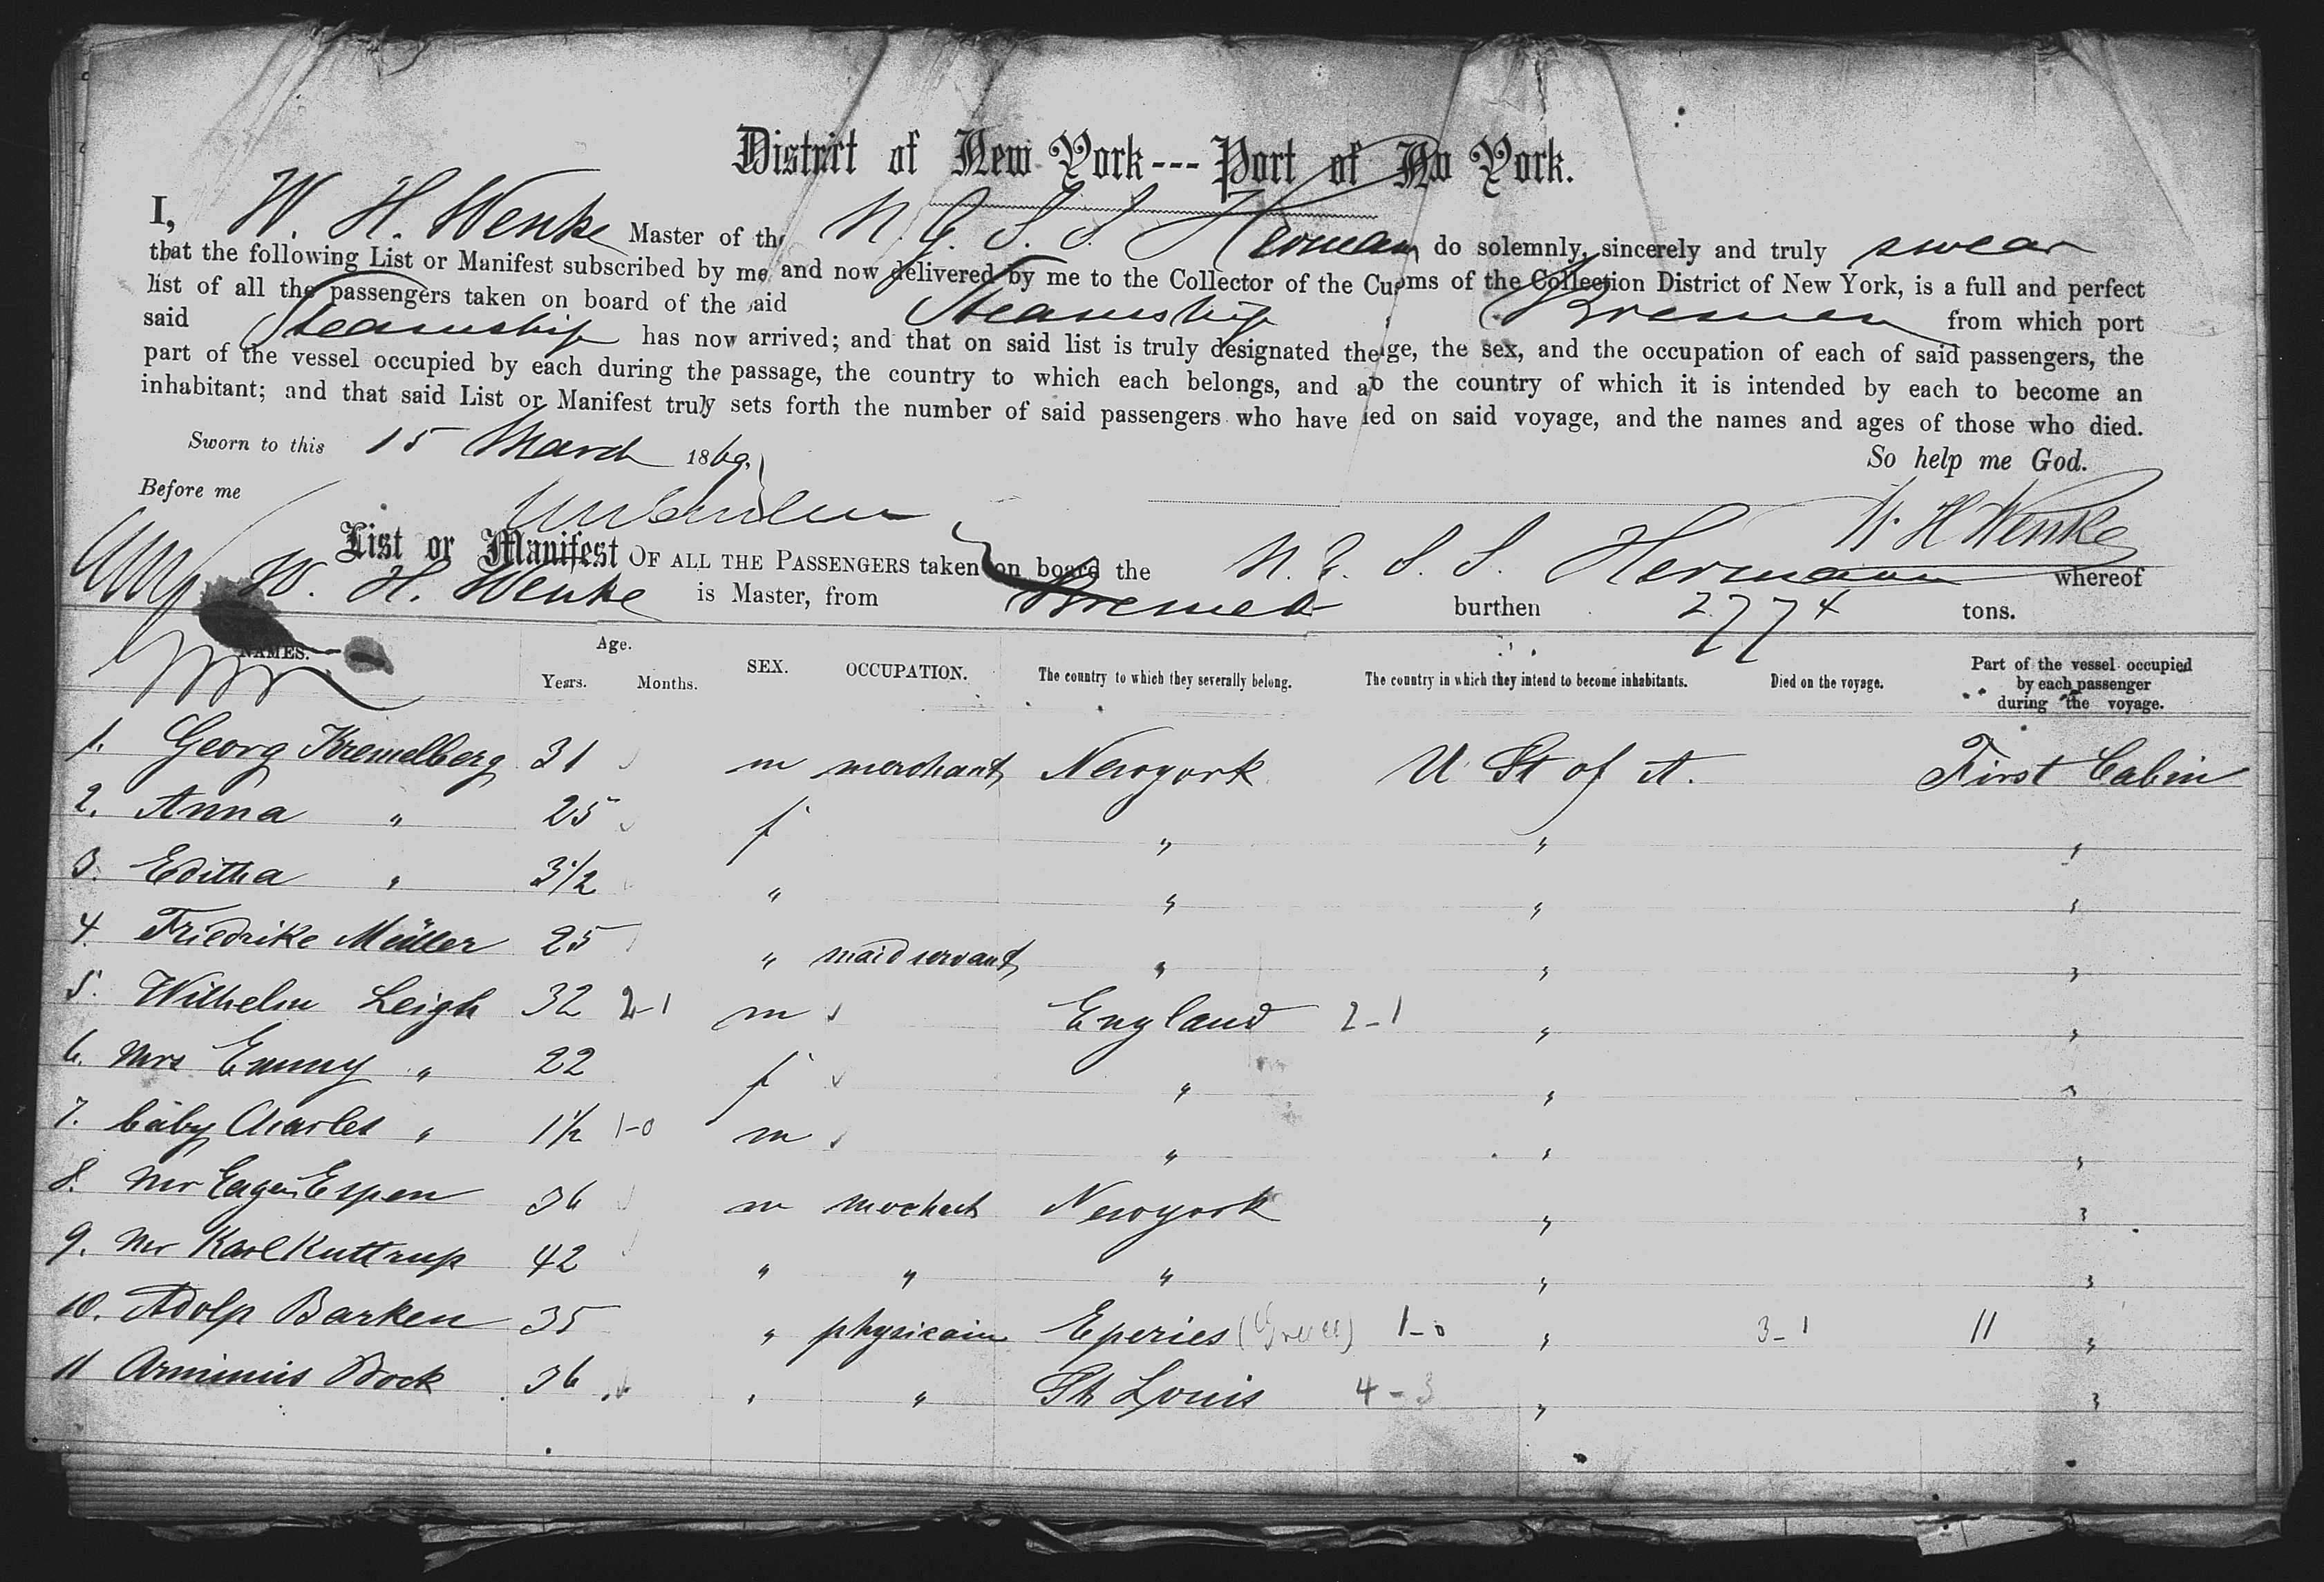 District of New York --- Port of N w York.
I, W. H. Wenke Master of the N. G. S. S. Hermann do solemnly, sincerely and truly swear
that the following List or Manifest subscribed by me, and now delivered by me to the Collector of the Cu oms of the Collection District of New York, is a full and perfect
list of all the passengers taken on board of the said Steamship Bremen from which port
said Steamship has now arrived; and that on said list is truly designated the ge, the sex, and the occupation of each of said passengers, the
part of the vessel occupied by each during the passage, the country to which each belongs, and a o the country of which it is intended by each to become an
inhabitant; and that said List or Manifest truly sets forth the number of said passengers who have ied on said voyage, and the names and ages of those who died.
Sworn to this 15 March 1869. So help me God.
Before me W H Wenke
List or Manifest OF ALL THE PASSENGERS taken on board the N. G. S. S. Hermann whereof
W. H. Wenke is Master, from Bremen burthen 2774 tons.
NAMES. Age. Years. Months. SEX. OCCUPATION. The country to which they severally belong. The country in which they intend to become inhabitants. Died on the voyage. Part of the vessel occupied by each passenger during the voyage.
1. Georg Kremelberg 31 m merchant Newyork U St of A. First Cabin
2. Anna " 25 f " " "
3. Editha " 3 1/2 " " " "
4. Friedrike Müller 25 " maid servant " " "
5. Wilhelm Leigh 32 2-1 m England 2-1 " "
6. Mrs Emmy " 22 f " " "
7. baby Charles " 1 1/2 1-0 m " " "
8. Mr Espen 36 m Newyork " "
9. Mr Karl Kuttrup 42 " " " " "
10. Adolp Barken 35 " physicain Eperies 1-0 " 3-1 11 "
11 Arminius Bock 36 " " St Louis 4-3 " "